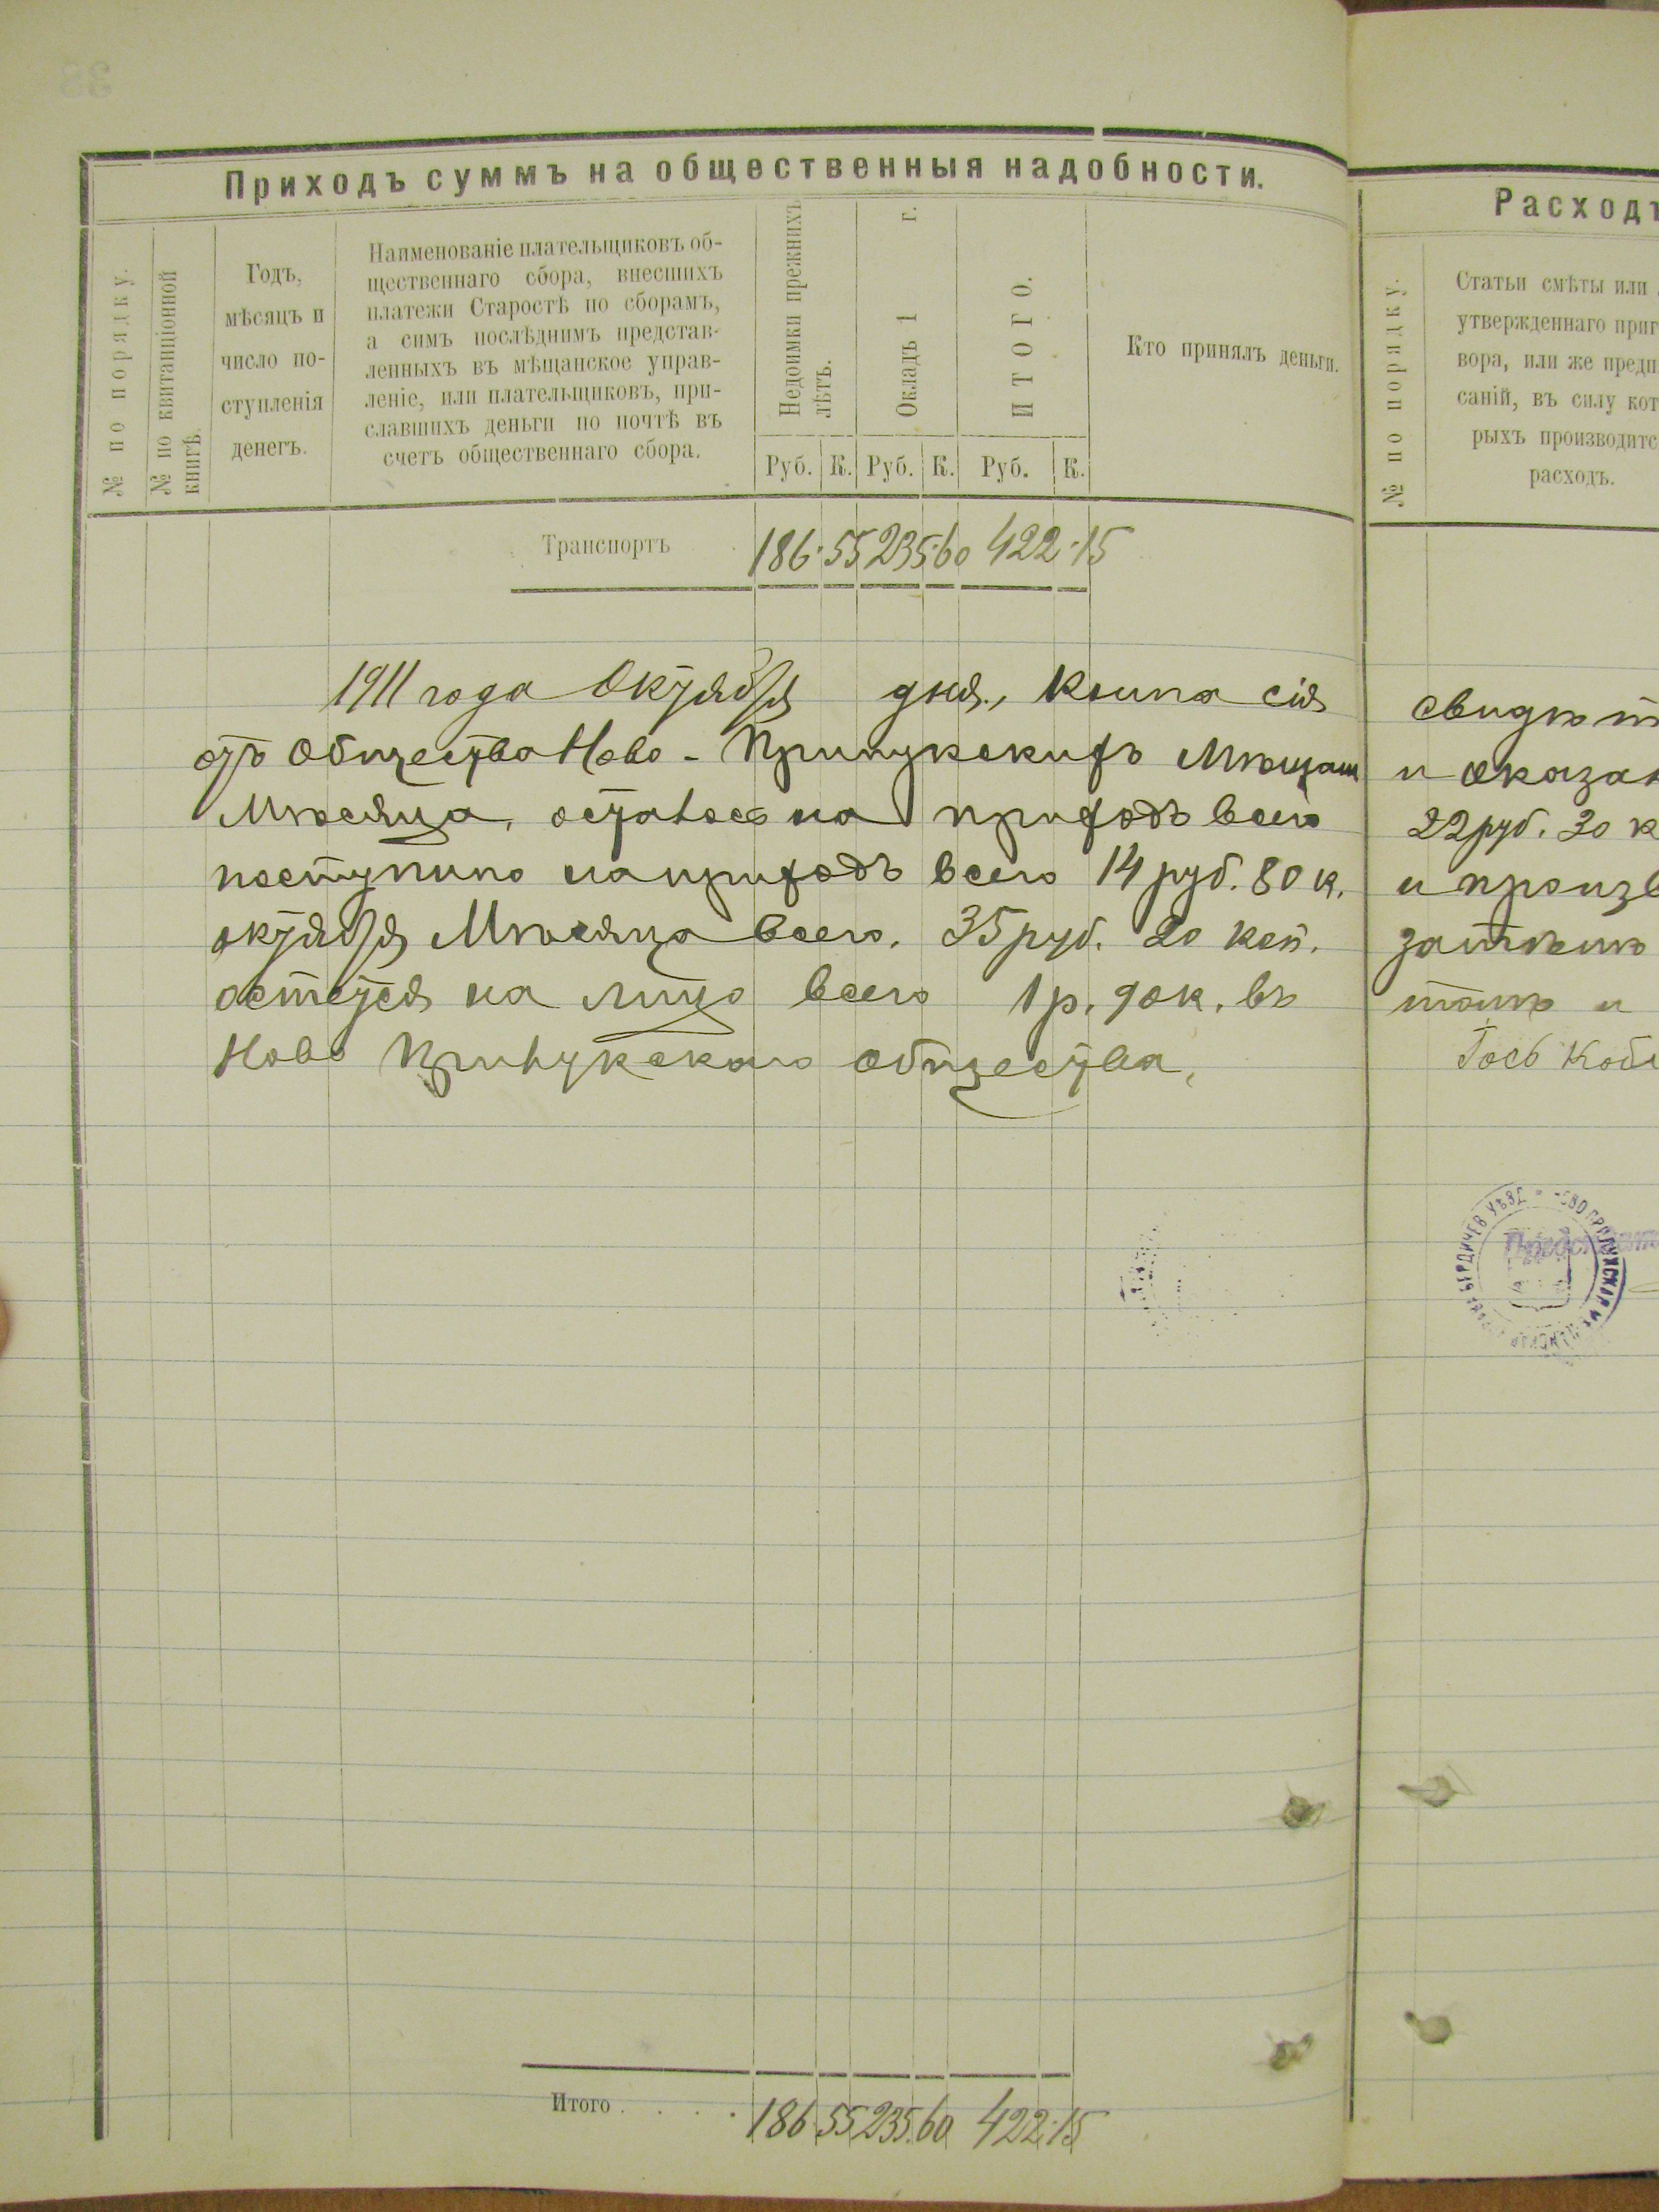 Приходъ суммъ на общественныя надобности.
№ по порядку.
№ по квитанціонной
книгѣ.
Годъ,
мѣсяцъ и
число по-
ступленія
денегъ.
Наименованіе плательщиковъ об-
щественнаго сбора, внесшихъ
платежи Старостѣ по сборамъ,
а симъ послѣднимъ представ-
ленныхъ въ мѣщанское управ-
леніе, или плательщиковъ, при-
славшихъ деньги по почтѣ въ
счетъ общественнаго сбора.
Недоимки прежнихъ
лѣтъ.
Окладъ 1 г.
ИТОГО.
Кто принялъ деньги.
Руб. К. Руб. К. Руб. К.
Транспортъ 186 55 235 60 422 15
1911 года Октября дня, Книга сія
отъ Общества Ново-Прилукскихъ Мѣщан
Мѣсяца, осталось на приходъ всего
поступило на приходъ всего 14 руб. 80 к.
октября Мѣсяца всего. 35 руб. 20 коп.
остется на лицо всего 1 р. 90 к. въ
Ново Прилукскаго общества,
Итого . . . . 186 55 235 60 422 15
Расходъ
№ по порядку.
Статьи смѣты или
утвержденнаго приг
вора, или же предп
саній, въ силу кот
рыхъ производитс
расходъ.
свидѣт
и оказан
22 руб. 30 к
и произв
затѣмъ
БЕРДИЧЕВ УѢЗД